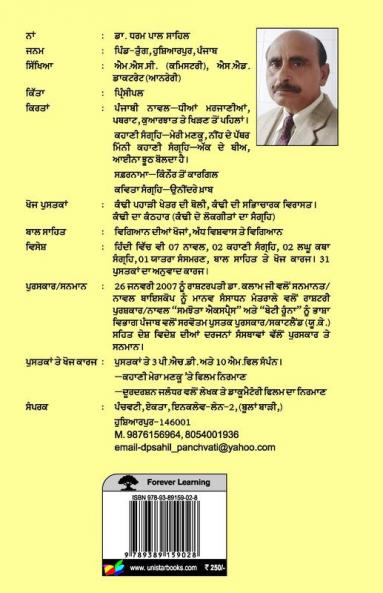 ਨਾਂ : ਡਾ. ਧਰਮ ਪਾਲ ਸਾਹਿਲ
ਜਨਮ : ਪਿੰਡ-ਤੁੰਗ, ਹੁਸ਼ਿਆਰਪੁਰ, ਪੰਜਾਬ
ਸਿੱਖਿਆ : ਐਮ.ਐਸ.ਸੀ. (ਕਮਿਸਟਰੀ), ਐਮ.ਐਡ.
ਡਾਕਟਰੇਟ (ਆਨਰੇਰੀ)
ਕਿੱਤਾ : ਪ੍ਰਿੰਸੀਪਲ
ਕਿਰਤਾਂ : ਪੰਜਾਬੀ ਨਾਵਲ—ਧੀਆਂ ਮਰਜਾਣੀਆਂ,
ਪਥਰਾਟ, ਕੁਆਰਝਾਤ ਤੇ ਖਿੜਣ ਤੋਂ ਪਹਿਲਾਂ।
ਕਹਾਣੀ ਸੰਗ੍ਰਹਿ—ਮੇਰੀ ਮਣਕੂ, ਨੀਂਹ ਦੇ ਪੱਥਰ
ਮਿੰਨੀ ਕਹਾਣੀ ਸੰਗ੍ਰਹਿ—ਅੱਕ ਦੇ ਬੀਅ,
ਆਈਨਾ ਝੂਠ ਬੋਲਦਾ ਹੈ।
ਸਫ਼ਰਨਾਮਾ—ਕਿੰਨੌਰ ਤੋਂ ਕਾਰਗਿਲ
ਕਵਿਤਾ ਸੰਗ੍ਰਹਿ—ਉਨੀਂਦਰੇ ਖ਼ਾਬ
ਖੋਜ ਪੁਸਤਕਾਂ : ਕੰਢੀ ਪਹਾੜੀ ਖੇਤਰ ਦੀ ਬੋਲੀ, ਕੰਢੀ ਦੀ ਸਭਿਆਚਾਰਕ ਵਿਰਾਸਤ।
ਕੰਢੀ ਦਾ ਕੰਠਹਾਰ (ਕੰਢੀ ਦੇ ਲੋਕਗੀਤਾਂ ਦਾ ਸੰਗ੍ਰਹਿ)
ਬਾਲ ਸਾਹਿਤ : ਵਿਗਿਆਨ ਦੀਆਂ ਖੋਜਾਂ, ਅੰਧ ਵਿਸ਼ਵਾਸ ਤੇ ਵਿਗਿਆਨ
ਵਿਸ਼ੇਸ਼ : ਹਿੰਦੀ ਵਿੱਚ ਵੀ 07 ਨਾਵਲ, 02 ਕਹਾਣੀ ਸੰਗ੍ਰਹਿ, 02 ਲਘੂ ਕਥਾ
ਸੰਗ੍ਰਹਿ, 01 ਯਾਤਰਾ ਸੰਸਮਰਣ, ਬਾਲ ਸਾਹਿਤ ਤੇ ਖੋਜ ਕਾਰਜ। 31
ਪੁਸਤਕਾਂ ਦਾ ਅਨੁਵਾਦ ਕਾਰਜ।
ਪੁਰਸਕਾਰ/ਸਨਮਾਨ : 26 ਜਨਵਰੀ 2007 ਨੂੰ ਰਾਸ਼ਟਰਪਤੀ ਡਾ. ਕਲਾਮ ਜੀ ਵਲੋਂ ਸਨਮਾਨਤ/
ਨਾਵਲ ਬਾਇਸਕੋਪ ਨੂੰ ਮਾਨਵ ਸੰਸਾਧਨ ਮੰਤਰਾਲੇ ਵਲੋਂ ਰਾਸ਼ਟਰੀ
ਪੁਰਸ਼ਕਾਰ/ਨਾਵਲ “ਸਮਝੌਤਾ ਐਕਸਪ੍ਰੈਸ” ਅਤੇ “ਬੇਟੀ ਹੂੰਨਾ” ਨੂੰ ਭਾਸ਼ਾ
ਵਿਭਾਗ ਪੰਜਾਬ ਵਲੋਂ ਸਰਵੋਤਮ ਪੁਸਤਕ ਪੁਰਸਕਾਰ/ਸਕਾਟਲੈਂਡ (ਯੂ.ਕੇ.)
ਸਹਿਤ ਦੇਸ਼ ਵਿਦੇਸ਼ ਦੀਆਂ ਦਰਜਨਾਂ ਸੰਸਥਾਵਾਂ ਵੱਲੋਂ ਪੁਰਸਕਾਰ ਤੇ
ਸਨਮਾਨ।
ਪੁਸਤਕਾਂ ਤੇ ਖੋਜ ਕਾਰਜ : ਪੁਸਤਕਾਂ ਤੇ 3 ਪੀ.ਐਚ.ਡੀ. ਅਤੇ 10 ਐਮ.ਫਿਲ ਸੰਪੰਨ।
—ਕਹਾਣੀ ਮੇਰਾ ਮਣਕੂ 'ਤੇ ਫਿਲਮ ਨਿਰਮਾਣ
—ਦੂਰਦਰਸ਼ਨ ਜਲੰਧਰ ਵਲੋਂ ਲੇਖਕ ਤੇ ਡਾਕੂਮੈਂਟਰੀ ਫਿਲਮ ਦਾ ਨਿਰਮਾਣ
ਸੰਪਰਕ : ਪੰਚਵਟੀ, ਏਕਤਾ, ਇਨਕਲੇਵ-ਲੇਨ-2, (ਬੂਲਾਂ ਬਾੜੀ,)
ਹੁਸ਼ਿਆਰਪੁਰ-146001
M. 9876156964, 8054001936
email-dpsahil_panchvati@yahoo.com
Forever Learning
ISBN 978-93-89159-02-8
9 789389 159028
www.unistarbooks.com ₹ 250/-